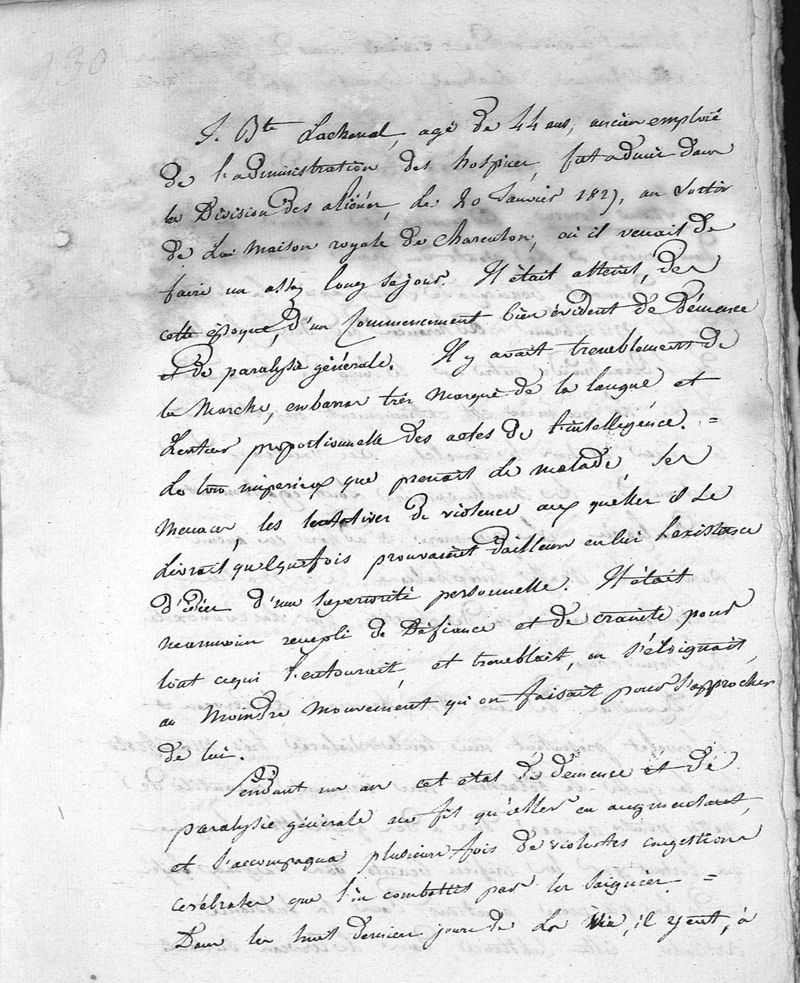 130
J. Bte Lachenal, agé de 44 ans, ancien employé
de l'administration des hospices, fut admis dans
la Division des aliénés, le 20 Janvier 1827, au Sortir
de La maison royale de Charenton, où il venait de
faire un assez long séjour. Il était atteint, dès
cette époque, d'un Commencement bien évident de Démence
et de paralysie générale. Il y avait tremblements de
la Marche, embarras très marqué de la langue et
Lenteur proportionnelle des actes de l'intelligence. =
Le ton impérieux que prenait le malade ses
menaces, les tentatives de violence aux quelles il se
Livrait quelquefois prouvaient d'ailleurs en lui L'existence
d'idées d'une superiorité personnelle. Il était
néanmoins rempli de Défiance et de crainte pour
tout ce qui l'entourait, et tremblait, ou s'éloignait,
au Moindre mouvement qu'on faisait pour s'approcher
de lui.
Pendant un an cet etat de démence et de
paralysie générale ne fit qu'aller en augmentant,
et s'accompagna plusieurs fois de violentes congestions
cérébrales que l'on combattit par les Saignées. =
Dans les huit derniers jours de La Vie, il y eut, à